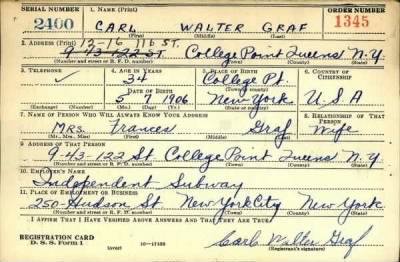 SERIAL NUMBER 1. NAME (Print) ORDER NUMBER
2400 CARL WALTER GRAF 1345
(First) (Middle) (Last)
2. ADDRESS (Print) 12-16 116 ST.
9-43-122 ST College Point Queens N.Y.
(Number and street or R. F. D. number) (Town) (County) (State)
3. TELEPHONE 4. AGE IN YEARS 5. PLACE OF BIRTH 6. COUNTRY OF CITIZENSHIP
34 College Pt.
DATE OF BIRTH (Town or county)
5 7 1906 New York U S A
(Exchange) (Number) (Mo.) (Day) (Yr.) (State or country)
7. NAME OF PERSON WHO WILL ALWAYS KNOW YOUR ADDRESS 8. RELATIONSHIP OF THAT PERSON
Mrs. Frances Graf Wife
(Mr., Mrs., Miss) (First) (Middle) (Last)
9. ADDRESS OF THAT PERSON
9-43-122 St College Point Queens N.Y.
(Number and street or R. F. D. number) (Town) (County) (State)
10. EMPLOYER'S NAME
Independent Subway
11. PLACE OF EMPLOYMENT OR BUSINESS
250-Hudson St New York City New York
(Number and street or R. F. D. number) (Town) (County) (State)
I AFFIRM THAT I HAVE VERIFIED ABOVE ANSWERS AND THAT THEY ARE TRUE.
REGISTRATION CARD
D. S. S. Form 1 (over) 16—17105 Carl Walter Graf
(Registrant's signature)